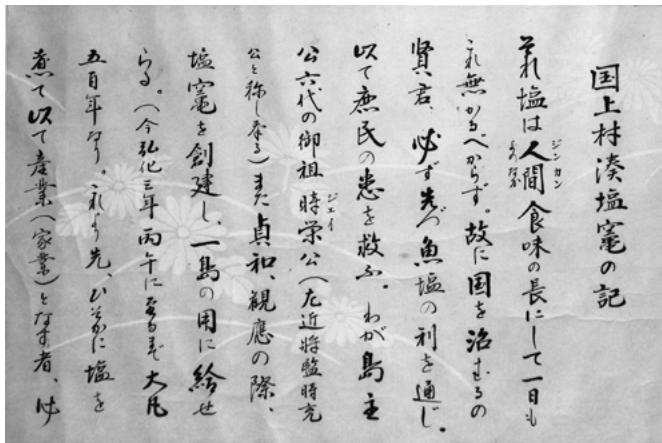 国上村湊塩竃の記
それ塩は人間食味の長にして一日も
ジンカン
よのなか
これ無かるべからず。故に国を治むるの
賢君、必ず先づ魚塩の利を通じ、
以て庶民の患を救ふ。わが島主
公六代の御祖時栄公(左近将監時充
ジエイ
公と称し奉る)また貞和、観應の際、
塩竃を創建し、一島の用に給せ
らる。(今弘化三年丙午に至るまで大凡
五百年なり。これより先、ひそかに塩を
煮て以て産業(家業)となす者、